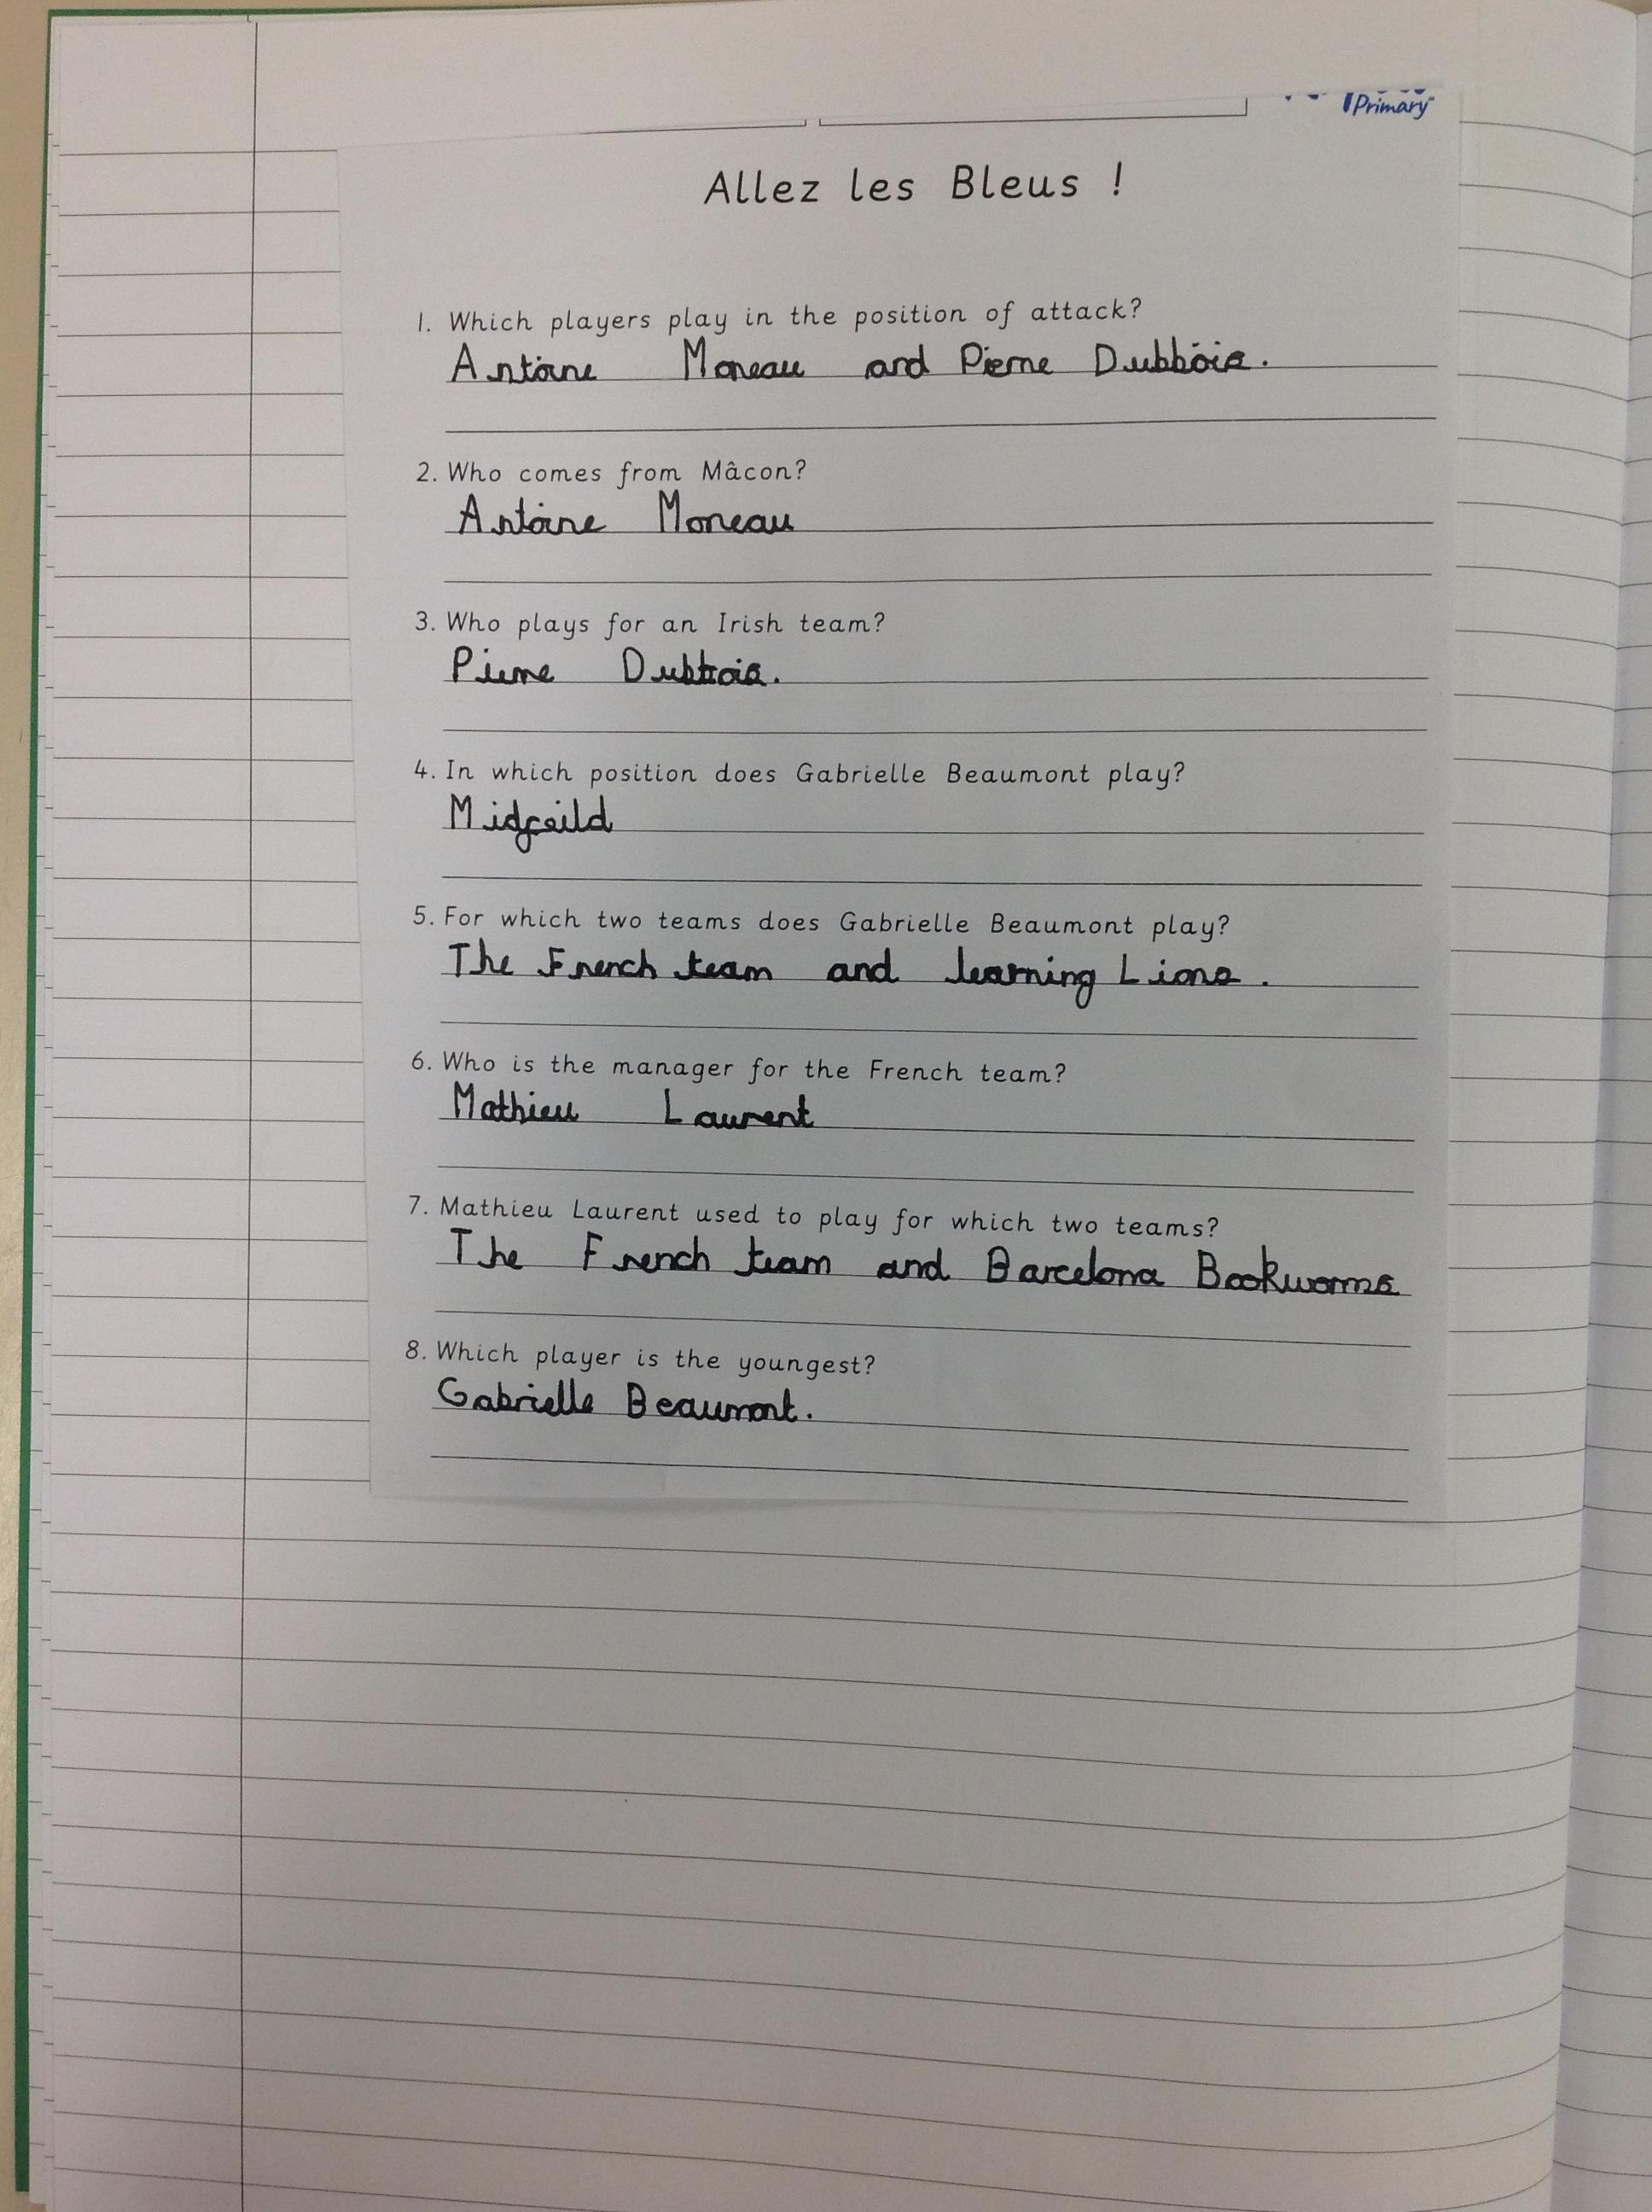 Primary
Allez les Bleus !
1. Which players play in the position of attack?
Antoine Moneau and Pierre Dubbois.
2. Who comes from Mâcon?
Antoine Moneau
3. Who plays for an Irish team?
Pierre Dubbois.
4. In which position does Gabrielle Beaumont play?
Midfeild
5. For which two teams does Gabrielle Beaumont play?
The French team and learning Lions.
6. Who is the manager for the French team?
Mathieu Laurent
7. Mathieu Laurent used to play for which two teams?
The French team and Barcelona Bookworms
8. Which player is the youngest?
Gabrielle Beaumont.